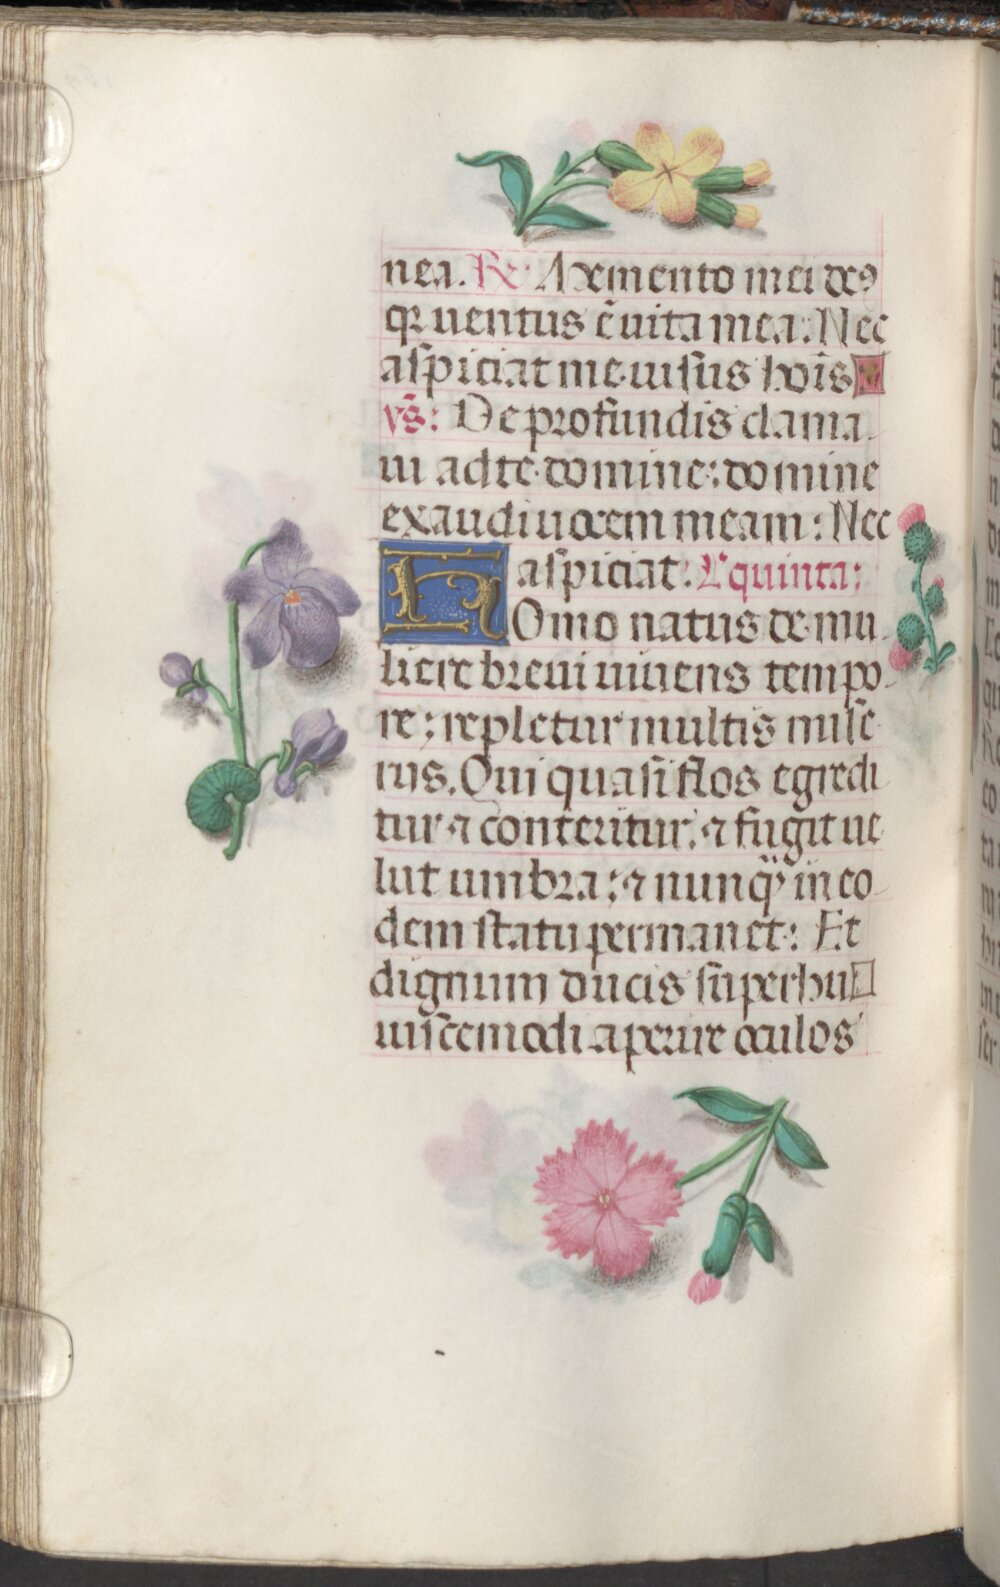 nea. R͞: Memento mei deꝰ
qꝛ uentus ē uita mea: Nec
aspiciat me uisus hoīs
vs̄: De profundis clama
ui ad te domine: domine
exaudi uocem meam: Nec
aspiciat. L' quinta:
HOmo natus de mu
liere breui uiuens tempo
re: repletur multis mise
riis. Qui quasi flos egredi
tur ⁊ conteritur, ⁊ fugit ue
lut umbra: ⁊ nunq̈ in eo
dem statu permanet: Et
dignum ducis suꝑ huiꝰ
uiscemodi aperire oculos